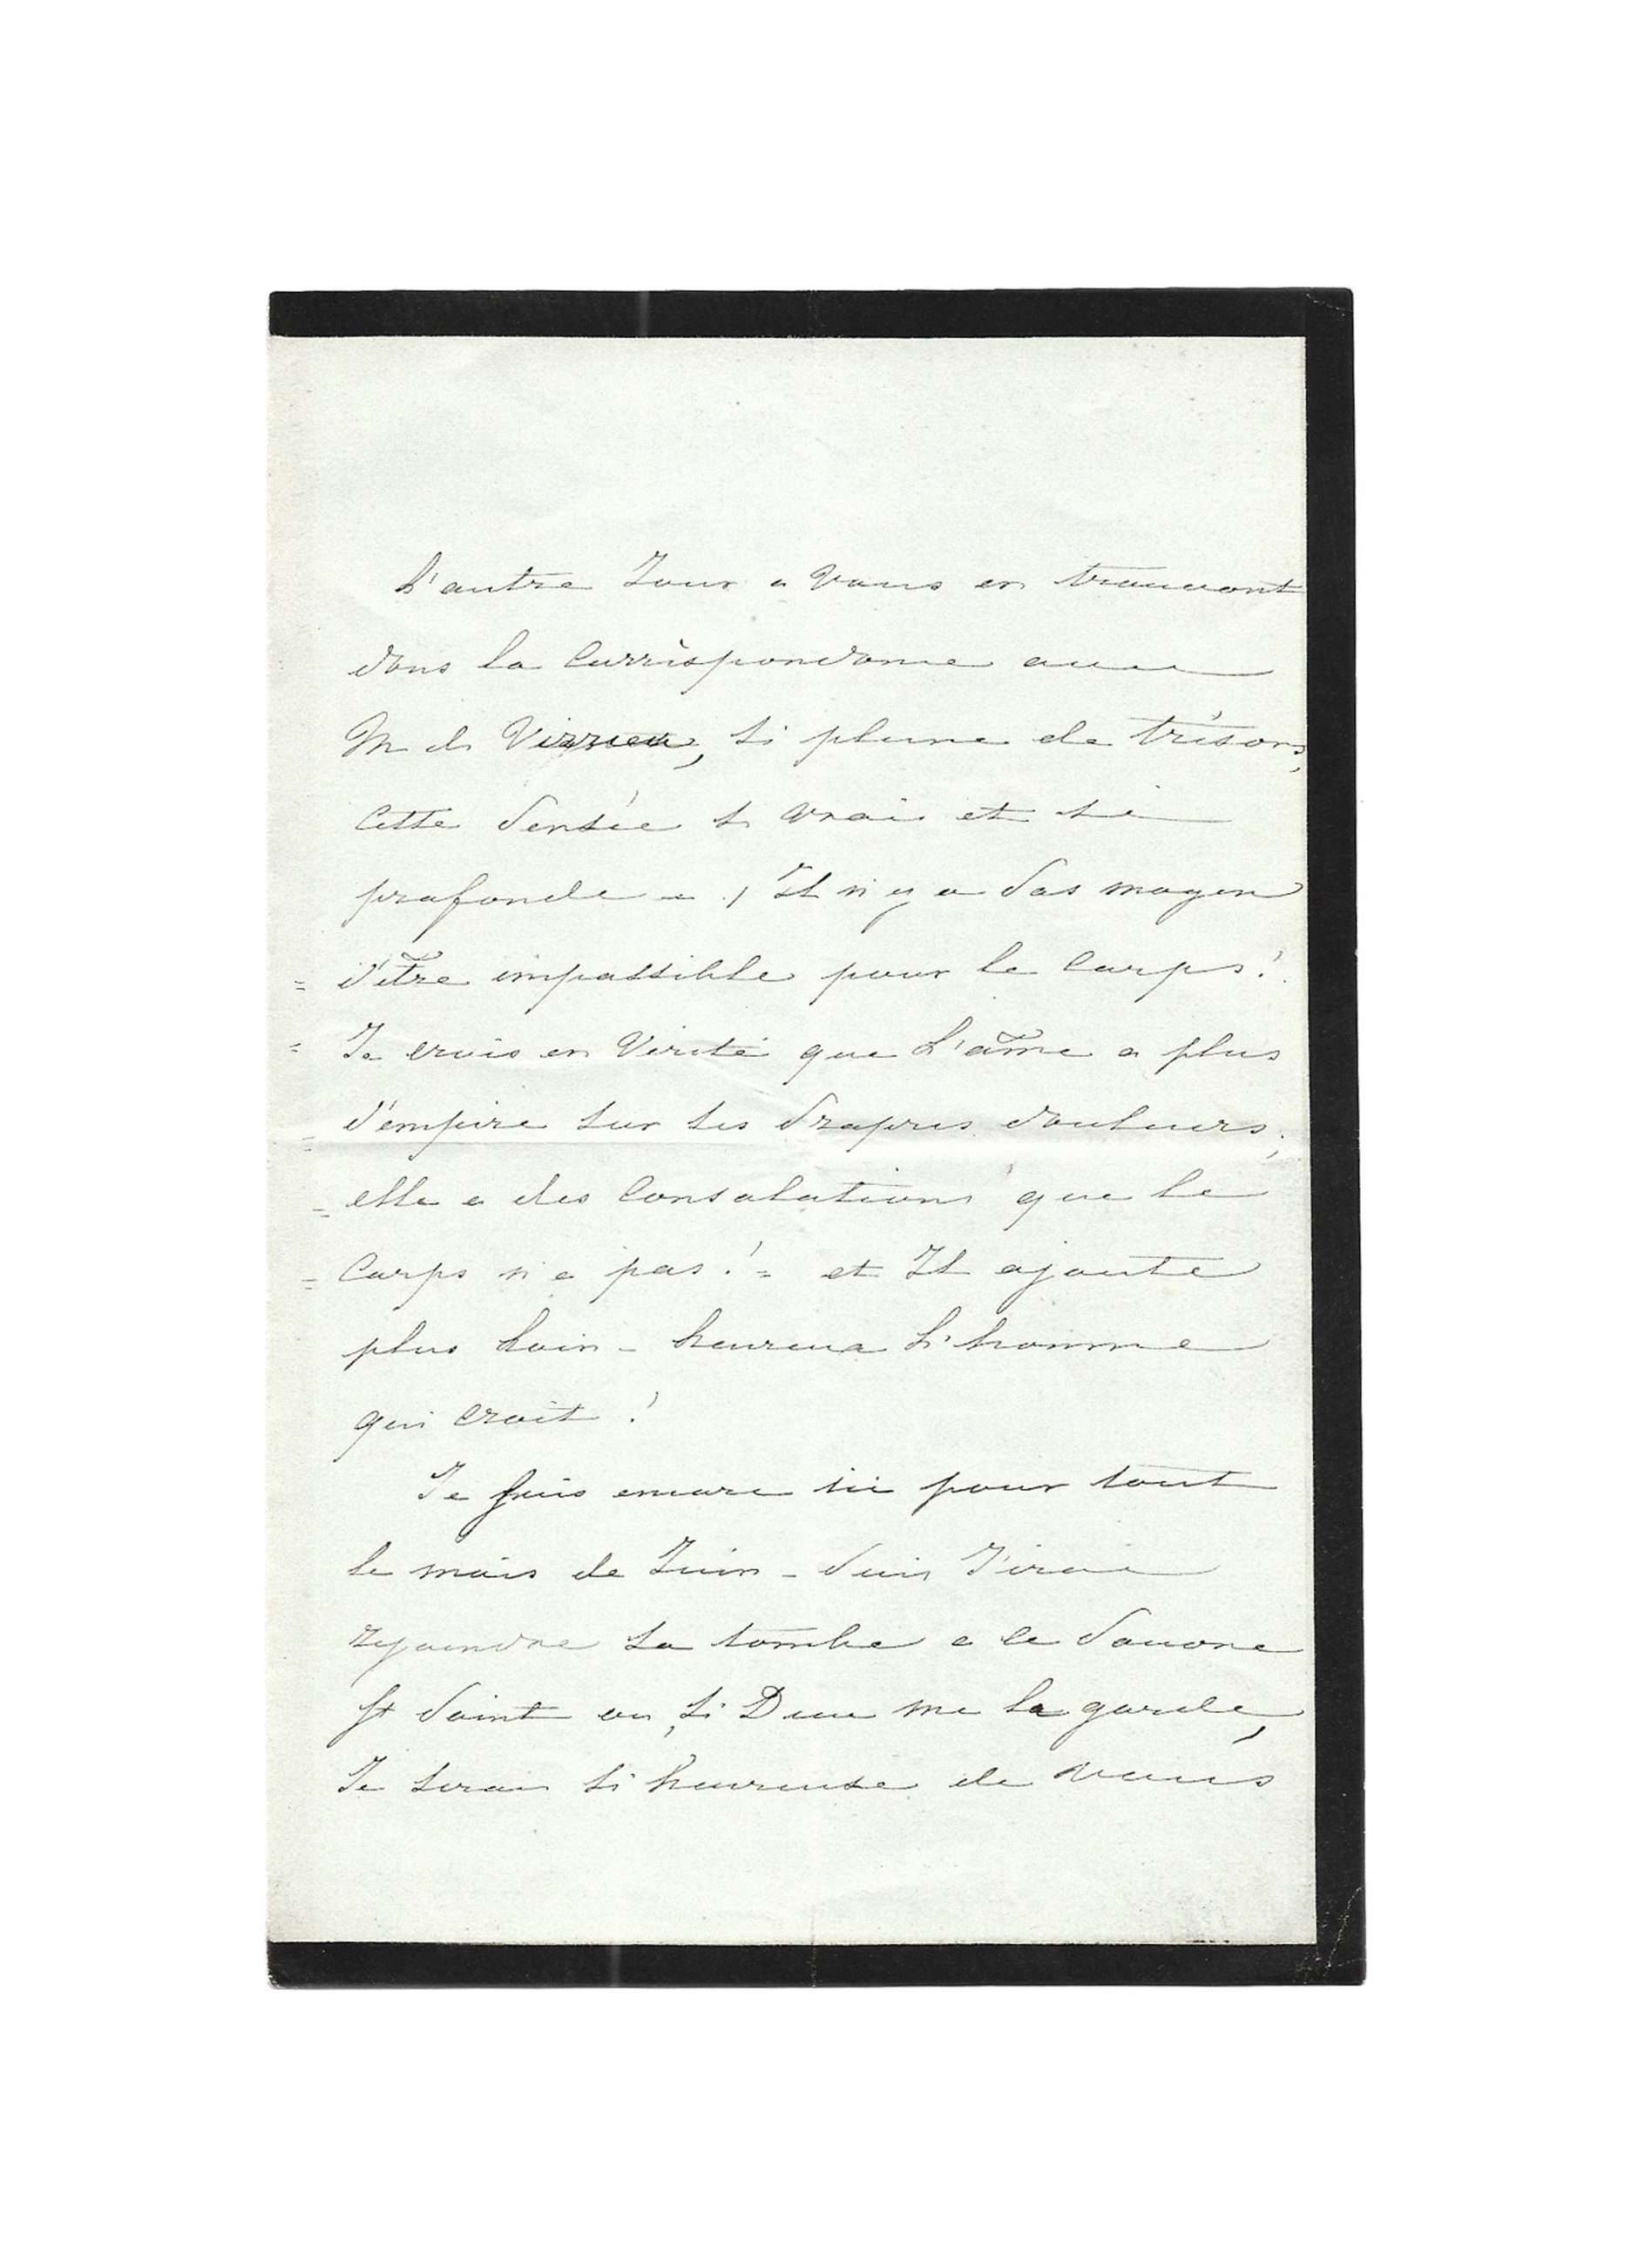 L'autre Jour a Vous en trouvant
dans la Corrèspondance avec
M de Virieu, si pleine de trésors,
cette Pensée si vraie et si
profonde – Il n'y a Pas moyen
= d'être impassible pour le Corps!
= Je crois en Vérité que L'âme a plus
= d'empire sur ses Propres douleurs,
= elle a des Consolations que le
= Corps n'a pas! = et Il ajoute
plus loin – heureux L'homme
qui Croit!
Je suis encore ici pour tout
le mois de Juin – Puis J'irai
rejoindre sa tombe a ce Pauvre
St Point ou, si Dieu me le garde,
Je serai si heureuse de vous